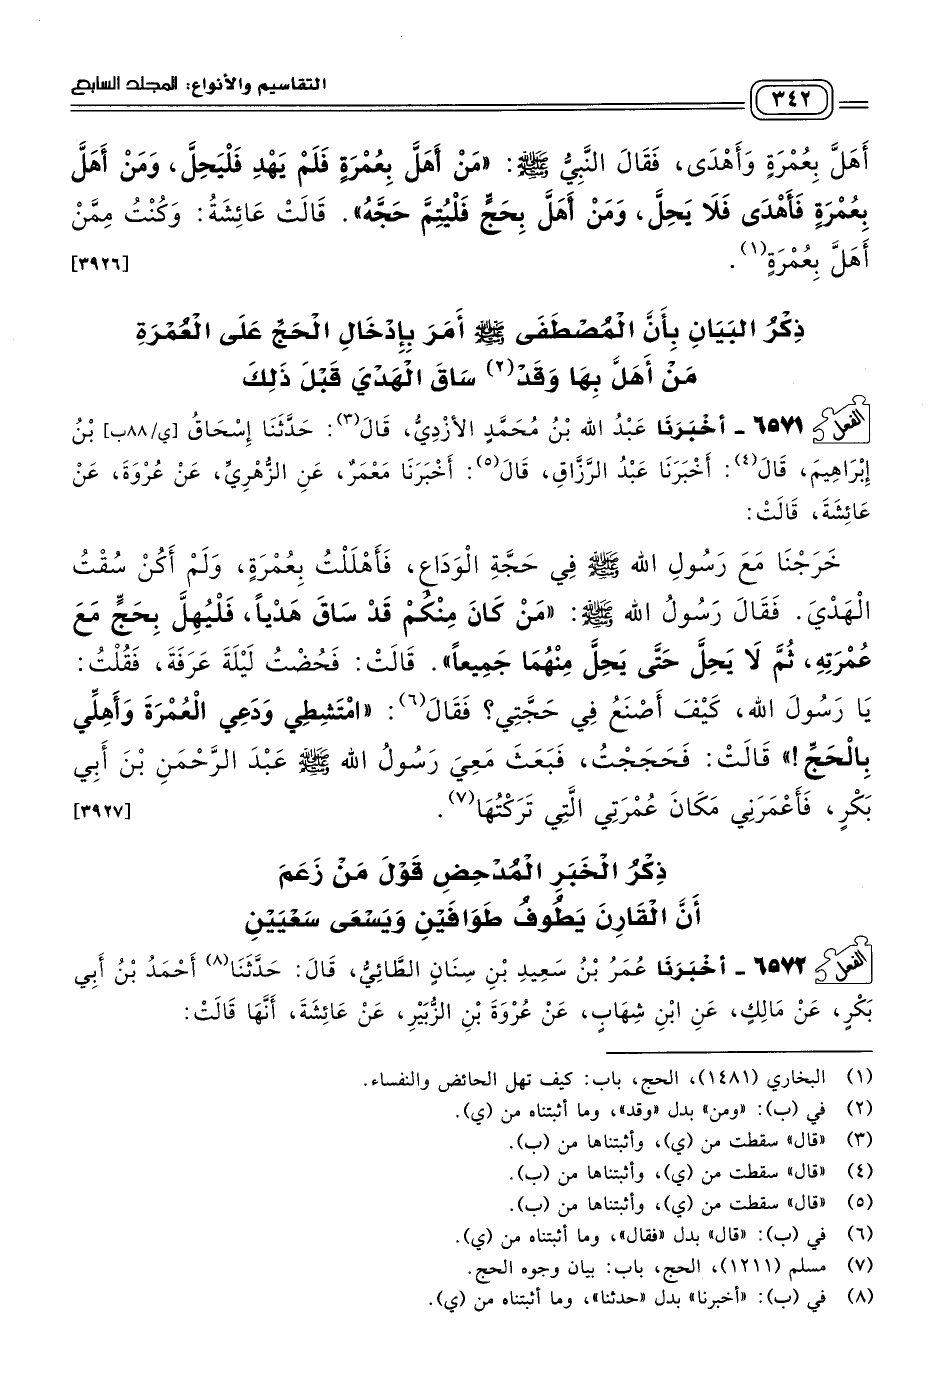 التقاسيم والأنواع: المجلد السابع
٣٤٢
أَهَلَّ بِعُمْرَةٍ وَأَهْدَى، فَقَالَ النَّبِيُّ ﷺ: «مَنْ أَهَلَّ بِعُمْرَةٍ فَلَمْ يَهْدِ فَلْيَحِلَّ، وَمَنْ أَهَلَّ
بِعُمْرَةٍ فَأَهْدَى فَلَا يَحِلَّ، وَمَنْ أَهَلَّ بِحَجٍّ فَلْيُتِمَّ حَجَّهُ». قَالَتْ عَائِشَةُ: وَكُنْتُ مِمَّنْ
أَهَلَّ بِعُمْرَةٍ(١). [٣٩٢٦]
ذِكْرُ البَيَانِ بِأَنَّ الْمُصْطَفَى ﷺ أَمَرَ بِإِدْخَالِ الْحَجِّ عَلَى الْعُمْرَةِ
مَنْ أَهَلَّ بِهَا وَقَدْ(٢) سَاقَ الْهَدْيَ قَبْلَ ذَلِكَ
الفعل ٦٥٧١ - أَخْبَرَنَا عَبْدُ الله بْنُ مُحَمَّدٍ الأَزْدِيُّ، قَالَ(٣): حَدَّثَنَا إِسْحَاقُ [ي/٨٨ب] بْنُ
إِبْرَاهِيمَ، قَالَ(٤): أَخْبَرَنَا عَبْدُ الرَّزَّاقِ، قَالَ(٥): أَخْبَرَنَا مَعْمَرٌ، عَنِ الزُّهْرِيِّ، عَنْ عُرْوَةَ، عَنْ
عَائِشَةَ، قَالَتْ:
خَرَجْنَا مَعَ رَسُولِ الله ﷺ فِي حَجَّةِ الْوَدَاعِ، فَأَهْلَلْتُ بِعُمْرَةٍ، وَلَمْ أَكُنْ سُقْتُ
الْهَدْيَ. فَقَالَ رَسُولُ الله ﷺ: «مَنْ كَانَ مِنْكُمْ قَدْ سَاقَ هَدْياً، فَلْيُهِلَّ بِحَجٍّ مَعَ
عُمْرَتِهِ، ثُمَّ لَا يَحِلَّ حَتَّى يَحِلَّ مِنْهُمَا جَمِيعاً». قَالَتْ: فَحُضْتُ لَيْلَةَ عَرَفَةَ، فَقُلْتُ:
يَا رَسُولَ الله، كَيْفَ أَصْنَعُ فِي حَجَّتِي؟ فَقَالَ(٦): «امْتَشِطِي وَدَعِي الْعُمْرَةَ وَأَهِلِّي
بِالْحَجِّ!» قَالَتْ: فَحَجَجْتُ، فَبَعَثَ مَعِيَ رَسُولُ الله ﷺ عَبْدَ الرَّحْمَنِ بْنَ أَبِي
بَكْرٍ، فَأَعْمَرَنِي مَكَانَ عُمْرَتِي الَّتِي تَرَكْتُهَا(٧). [٣٩٢٧]
ذِكْرُ الْخَبَرِ الْمُدْحِضِ قَوْلَ مَنْ زَعَمَ
أَنَّ الْقَارِنَ يَطُوفُ طَوَافَيْنِ وَيَسْعَى سَعْيَيْنِ
الفعل ٦٥٧٢ - أَخْبَرَنَا عُمَرُ بْنُ سَعِيدِ بْنِ سِنَانٍ الطَّائِيُّ، قَالَ: حَدَّثَنَا(٨) أَحْمَدُ بْنُ أَبِي
بَكْرٍ، عَنْ مَالِكٍ، عَنِ ابْنِ شِهَابٍ، عَنْ عُرْوَةَ بْنِ الزُّبَيْرِ، عَنْ عَائِشَةَ، أَنَّهَا قَالَتْ:
(١) البخاري (١٤٨١)، الحج، باب: كيف تهل الحائض والنفساء.
(٢) في (ب): «ومن» بدل «وقد»، وما أثبتناه من (ي).
(٣) «قال» سقطت من (ي)، وأثبتناها من (ب).
(٤) «قال» سقطت من (ي)، وأثبتناها من (ب).
(٥) «قال» سقطت من (ي)، وأثبتناها من (ب).
(٦) في (ب): «قال» بدل «فقال»، وما أثبتناه من (ي).
(٧) مسلم (١٢١١)، الحج، باب: بيان وجوه الحج.
(٨) في (ب): «أخبرنا» بدل «حدثنا»، وما أثبتناه من (ي).